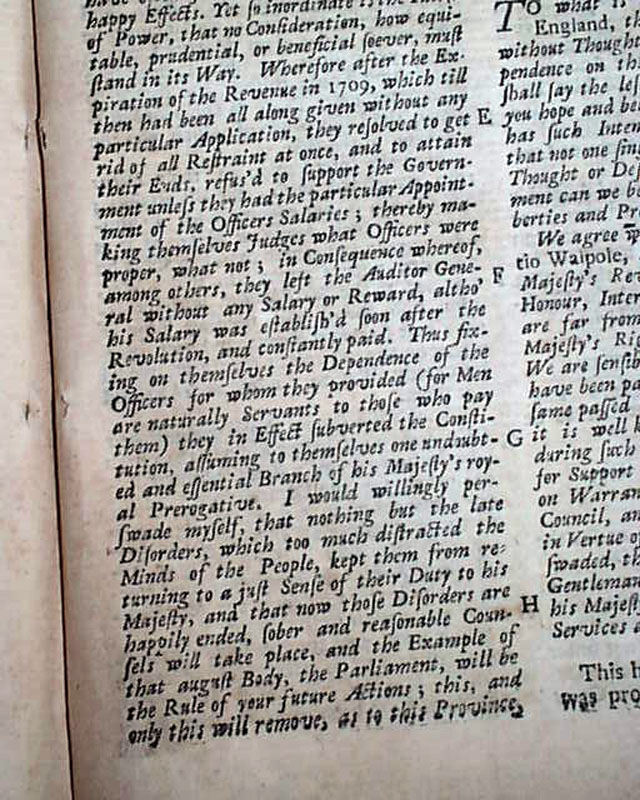 happy Effects. Yet ſo inordinate is the
of Power, that no Conſideration, how equi-
table, prudential, or beneficial ſoever, muſt
ſtand in its Way. Wherefore after the Ex-
piration of the Revenue in 1709, which till
then had been all along given without any
particular Application, they reſolved to get
rid of all Reſtraint at once, and to attain
their Ends, refus'd to ſupport the Govern-
ment unleſs they had the particular Appoint-
ment of the Officers Salaries; thereby ma-
king themſelves Judges what Officers were
proper, what not; in Conſequence whereof,
among others, they left the Auditor Gene-
ral without any Salary or Reward, altho'
his Salary was eſtabliſh'd ſoon after the
Revolution, and conſtantly paid. Thus fix-
ing on themſelves the Dependence of the
Officers for whom they provided (for Men
are naturally Servants to thoſe who pay
them) they in Effect ſubverted the Conſti-
tution, aſſuming to themſelves one undoubt-
ed and eſſential Branch of his Majeſty's roy-
al Prerogative. I would willingly per-
ſwade myſelf, that nothing but the late
Diſorders, which too much diſtracted the
Minds of the People, kept them from re-
turning to a juſt Senſe of their Duty to his
Majeſty, and that now thoſe Diſorders are
happily ended, ſober and reaſonable Coun-
ſels will take place, and the Example of
that auguſt Body, the Parliament, will be
the Rule of your future Actions; this, and
only this will remove, as to this Province,
E
F
G
H
TO what is
England, t
without Thought
pendence on th
ſhall ſay the leſ
you hope and be
has ſuch Inten
that not one ſin
Thought or De
ment can we b
berties and Pr
We agree
tio Walpole,
Majeſty's Re
Honour, Inter
are far from
Majeſty's Rig
We are ſenſib
have been pa
ſame paſſed
it is well k
during ſuch
for Support
on Warran
Council, an
in Vertue o
ſwaded, th
Gentleman
his Majeſt
Services a
This h
was pro